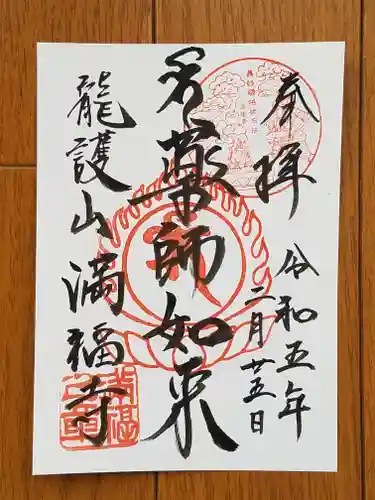 奉拝
令和五年
二月廿五日
薬師如来
龍護山満福寺